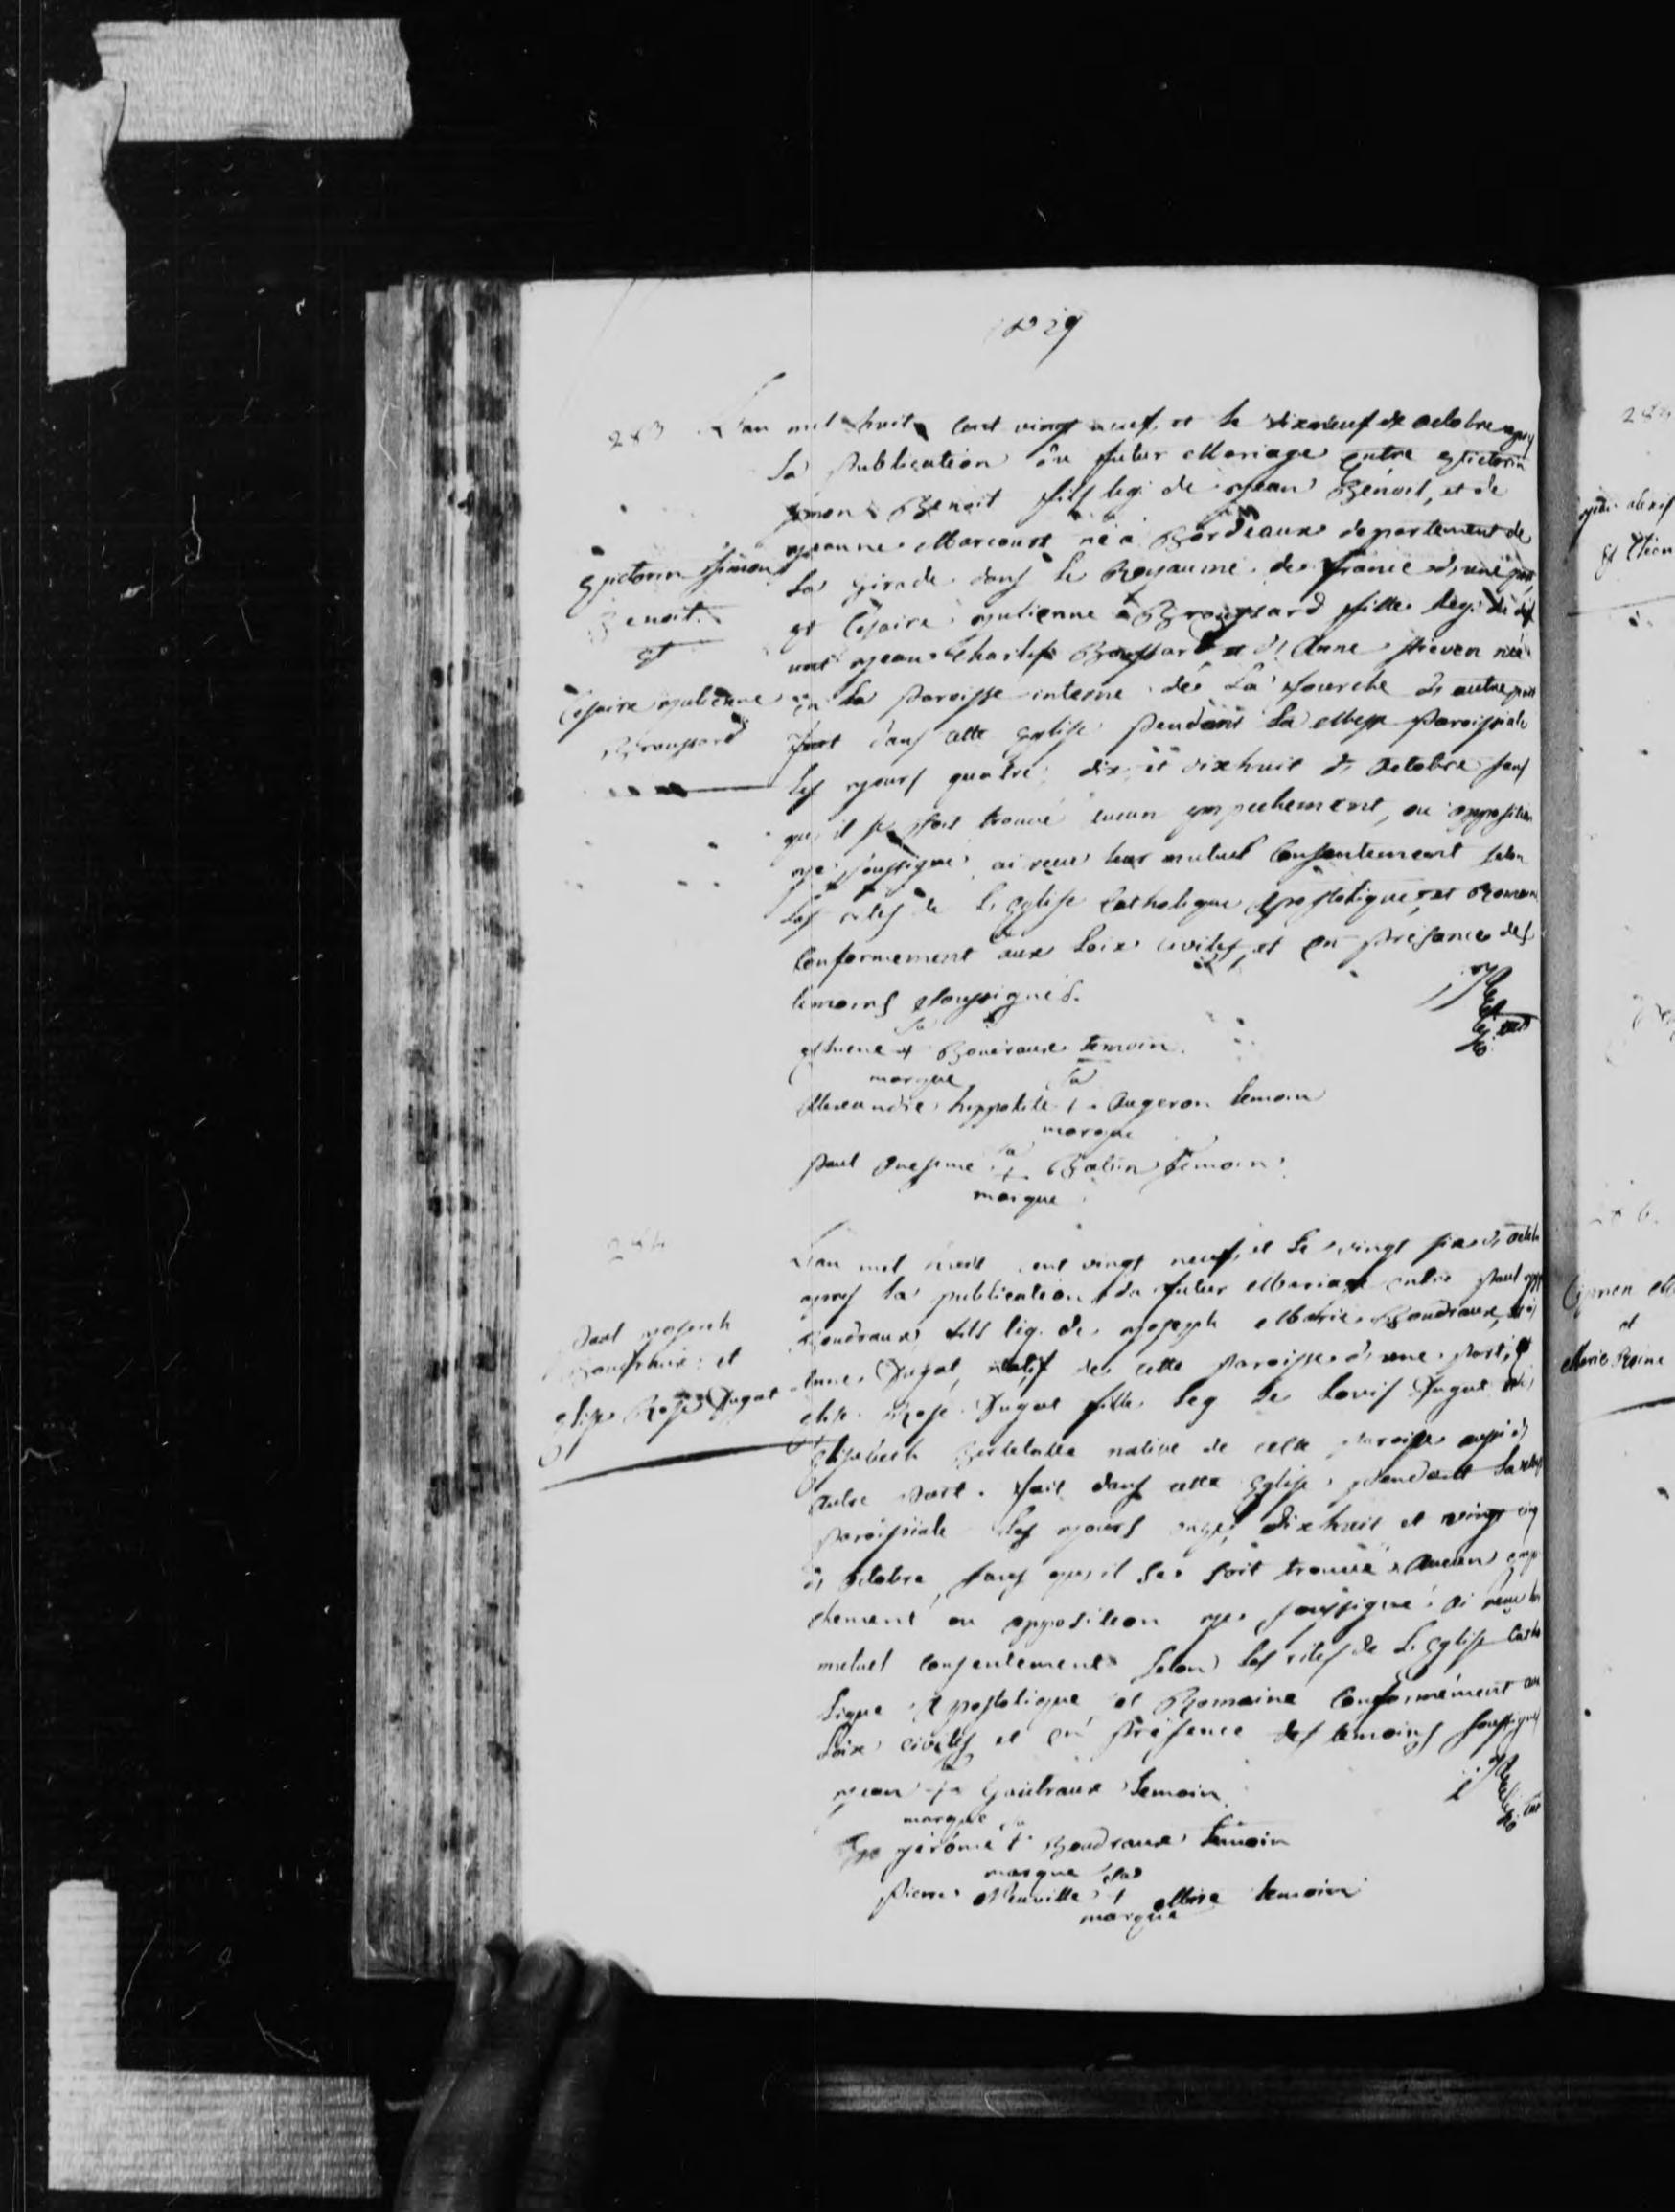 1829
283
L'an mil huit cent vingt neuf, et le dixneuf de octobre apres
la publication du futur Mariage entre Victorin
Simon Benoit fils leg. de Jean Benoit, et de
Jeanne Marcourt né à Bordeaux departement de
La Girade dans le Royaume de france d'une part,
et Cesaire Julienne Broussard fille leg. de def
unt Jean Charles Broussard et d'Anne né
en la Paroisse interne de La fourche d'autre part
fait dans cette Eglise pendant la Messe Paroissiale
les jours quatre, dix, et dixhuit d'Octobre sans
qu'il se soit trouvé aucun empechement, ou opposition
je soussigné ai reçu leur mutuel Consentement selon
les rites de L'Eglise Catholique Apostolique, et Romain
Conformement aux Loix civiles, et en présance des
temoins soussignés.
Victorin Simon
Benoit.
et
Cesaire Julienne
Broussard
sa
+ temoin.
marque
sa
Alexandre hippolite + Augeron temoin
marque
sa
Paul Onesime + Babin temoin
marque
284
L'an mil huit cent vingt neuf, et le vingt six d'octob
apres la publication du futur Mariage entre Paul
Boudraux fils leg. de Joseph Marie Boudraux,
Anne Dugat, natif de cette Paroisse d'une Part, et
Elise Rose Dugat fille leg de Louis Dugat
Elisabeth native de cette Paroisse aussi d'
autre Part. fait dans cette Eglise pendant La
Paroissiale les jours onze, dixhuit et vingt cinq
d'Octobre, sans qu'il se soit trouvé aucun emp
chement ou opposition je soussigné ai reçu
mutuel consentement selon les rites de L'Eglise Catho
lique Apostolique, et Romaine Conformément au
Loix civiles et en Présence des temoins soussignés
Paul Joseph
Boudraux et
Elise Rose Dugat
sa
Jean + Gautraux temoin.
marque sa
Jérôme + Boudraux temoin
marque sa
Pierre Neuville + temoin
marque